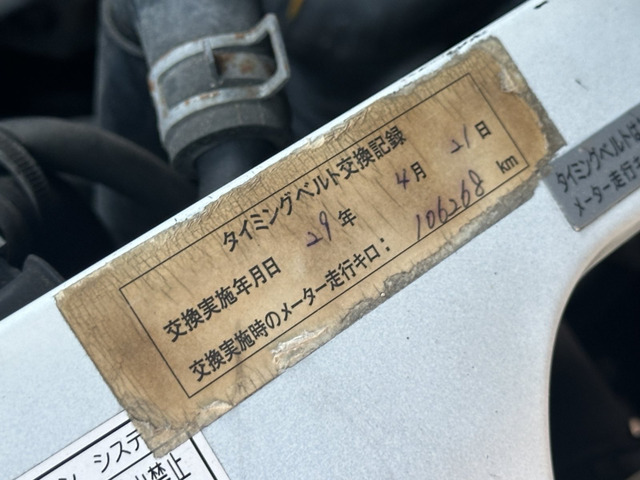 タイミングベルト交換記録
交換実施年月日 29年 4月 21日
交換実施時のメーター走行キロ: 106268 km
タイミングベルト
メーター走行
システ
禁止